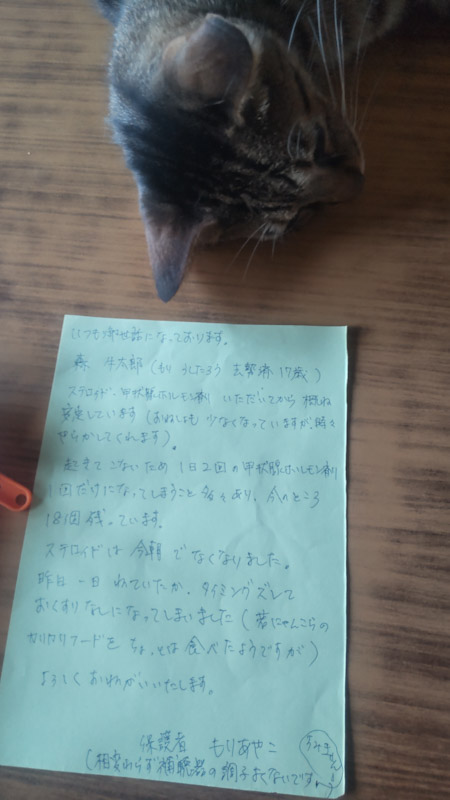 いつもお世話になっております。
森 牛太郎(もり うしたろう 去勢済 17歳)
ステロイド、甲状腺ホルモン剤 いただいてから 概ね
安定しています(おねしょも 少なくなっていますが、時々
やらかしてくれます)。
起きてこないため 1日2回の甲状腺ホルモン剤
1回だけになってしまうこと 多々あり、今のところ
18回 残っています。
ステロイドは 今朝 でなくなりました。
昨日 一日 ねていたか、タイミングズレて
おくすりなしになってしまいました(若にゃんこらの
カリカリフードを ちょっとは 食べたようですが)
よろしく おねがいいたします。
保護者 もりあやこ
(相変わらず補聴器の調子よくないです